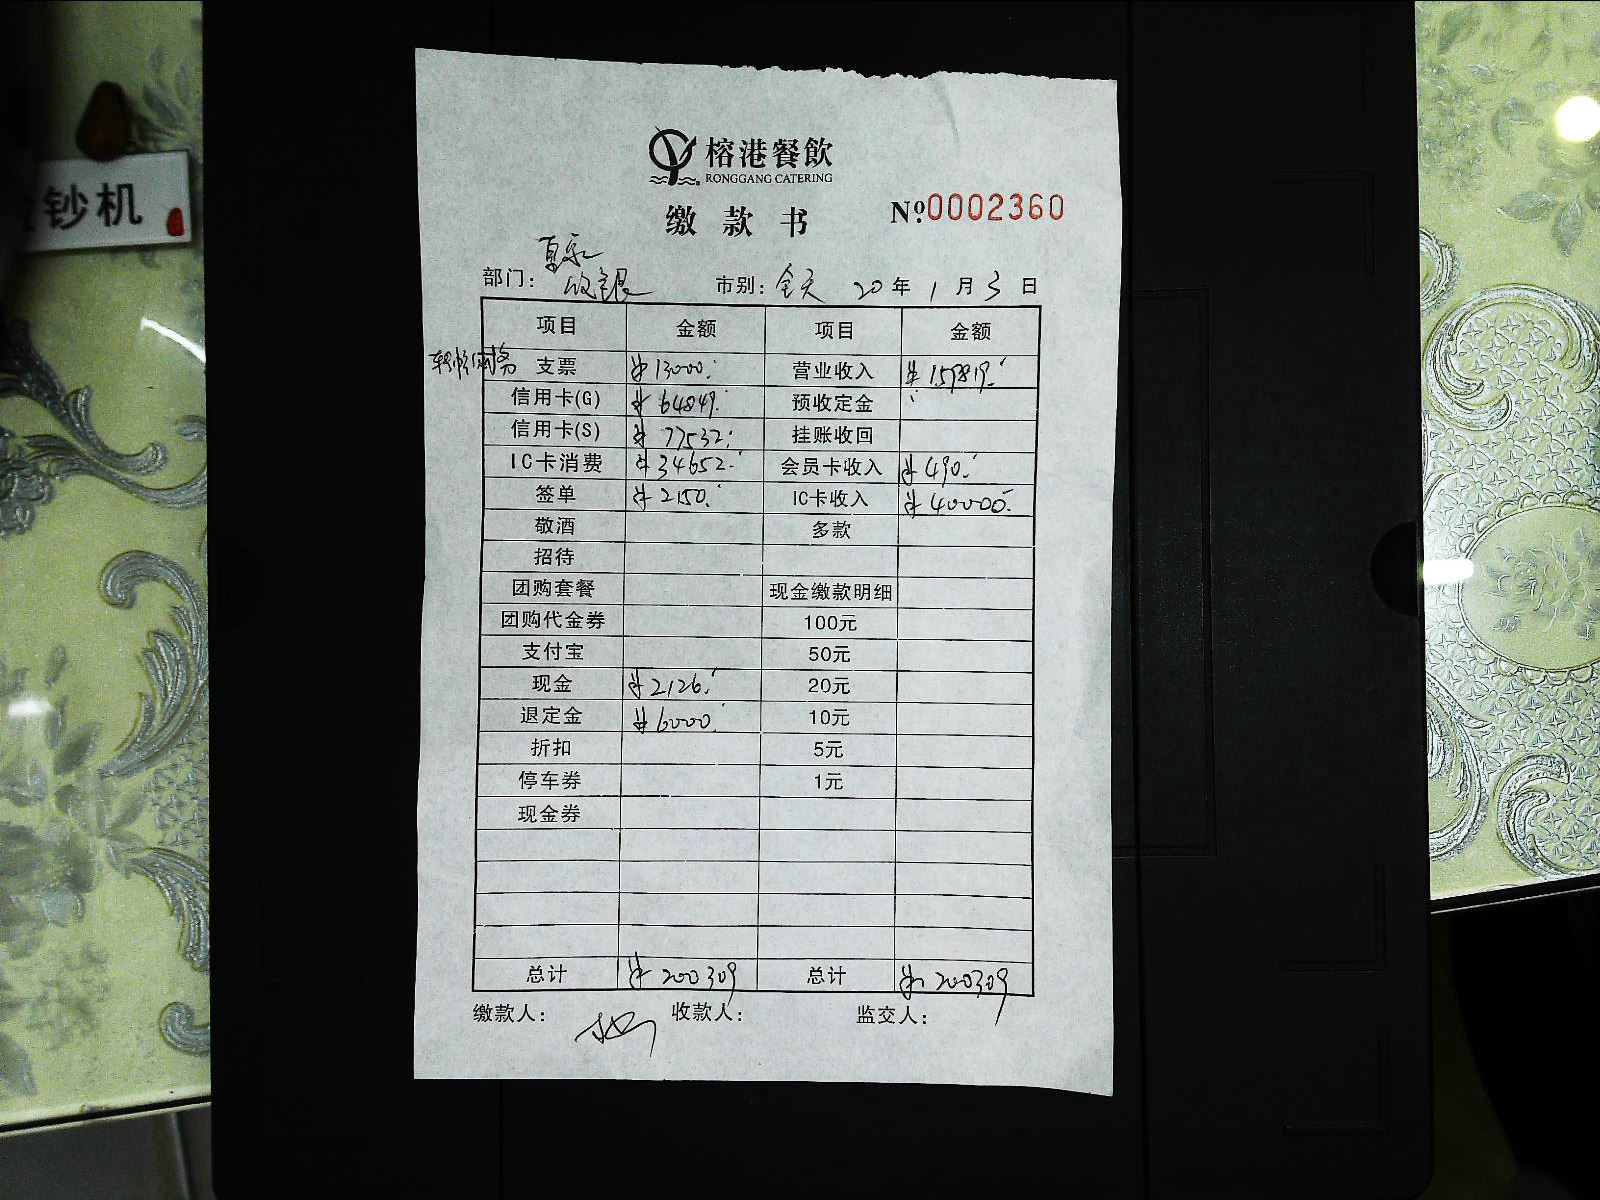 钞机
榕港餐飲
RONGGANG CATERING
缴款书 №0002360
部门: 收银 市别: 全天 20年1月3日
项目 金额 项目 金额
支票 ¥13000. 营业收入 ¥159819.
信用卡(G) ¥64849. 预收定金
信用卡(S) ¥77532. 挂账收回
IC卡消费 ¥34652. 会员卡收入 ¥490.
签单 ¥2150. IC卡收入 ¥40000.
敬酒 多款
招待
团购套餐 现金缴款明细
团购代金券 100元
支付宝 50元
现金 ¥2126. 20元
退定金 ¥6000. 10元
折扣 5元
停车券 1元
现金券
总计 ¥200309 总计 ¥200309
缴款人: 收款人: 监交人: